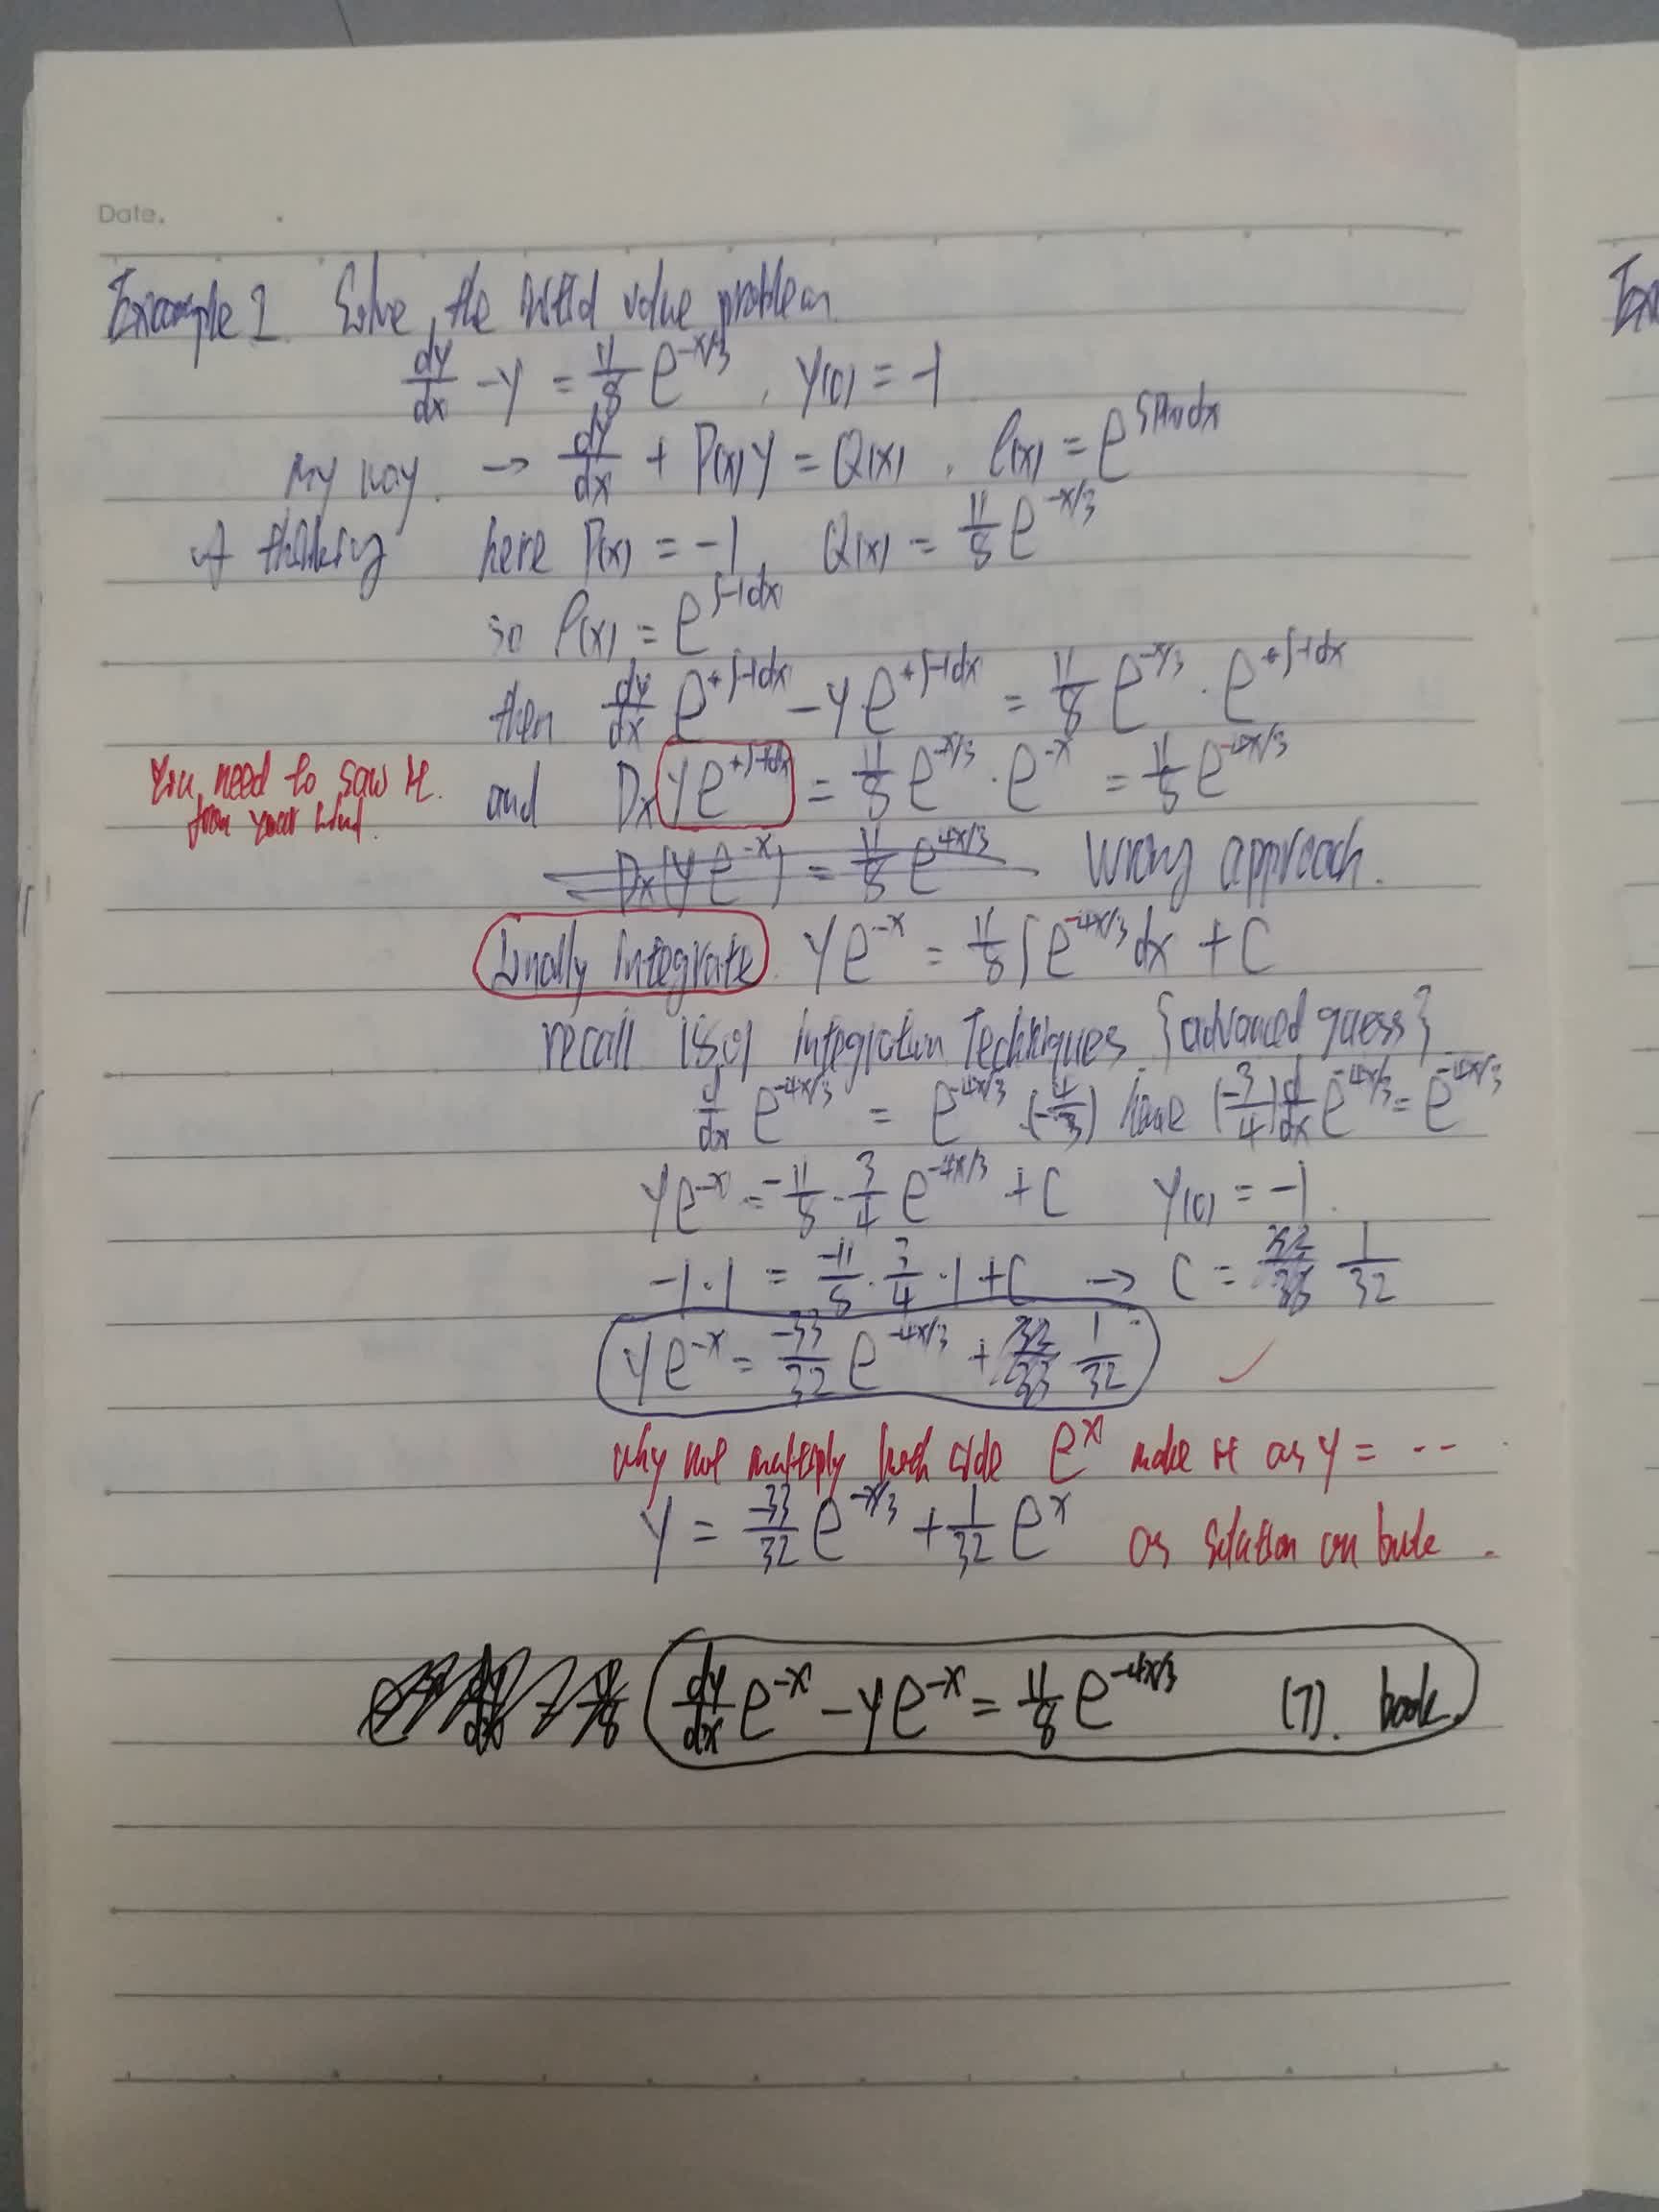 Date.
Example 1. Solve the initial value problem
dy/dx - y = 11/8 e^{-x/3}, y(0) = -1
My way → dy/dx + P(x)y = Q(x), ρ(x) = e^{∫P(x)dx}
of thinking here P(x) = -1, Q(x) = 11/8 e^{-x/3}
so ρ(x) = e^{∫-1dx}
then dy/dx e^{+∫-1dx} - y e^{+∫-1dx} = 11/8 e^{-x/3} · e^{+∫-1dx}
You need to saw it and Dx y e^{+∫-1dx} = 11/8 e^{-x/3} · e^{-x} = 11/8 e^{-4x/3}
from your
Dx(y e^{-x}) = 11/8 e^{4x/3} Wrong approach.
integrate. y e^{-x} = 11/8 ∫e^{-4x/3} dx + C
recall 18.01 integration Techniques {advanced guess}
d/dx e^{-4x/3} = e^{-4x/3} · (-4/3) have (-3/4) d/dx e^{-4x/3} = e^{-4x/3}
y e^{-x} = -11/8 · 3/4 e^{-4x/3} + C y(0) = -1.
-1·1 = -11/8 · 3/4 · 1 + C → C = 1/32
y e^{-x} = -33/32 e^{-4x/3} + 1/32
why not multiply both side e^x make it as y = ...
y = -33/32 e^{-x/3} + 1/32 e^x as solution on book.
dy/dx e^{-x} - y e^{-x} = 11/8 e^{-4x/3} (7). book.
Ex